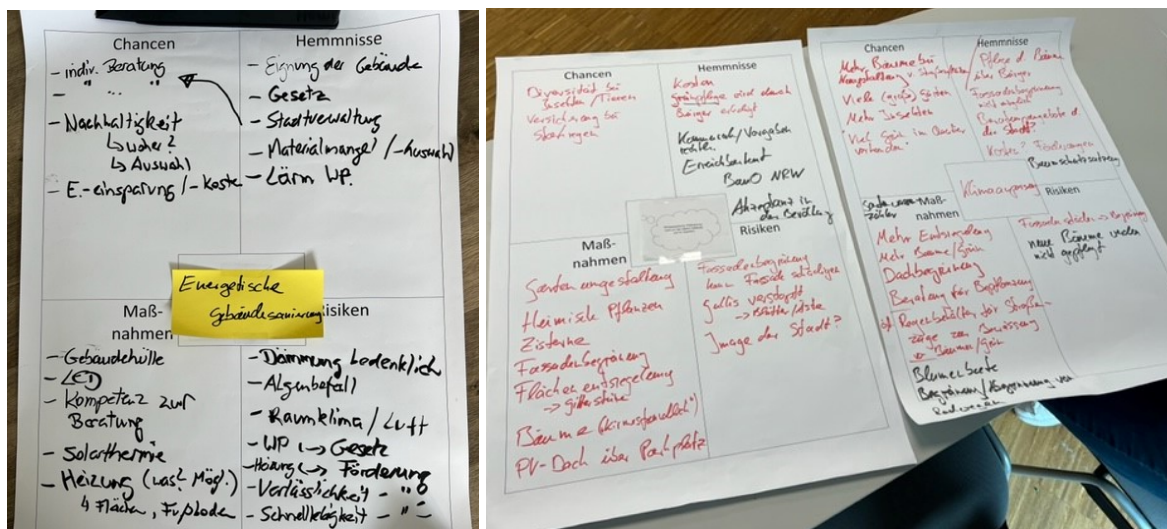 Chancen
- indiv. Beratung
- " ... " "
- Nachhaltigkeit
↳ woher?
↳ Auswahl
- E.-einsparung / -koste
Hemmnisse
- Eignung der Gebäude
- Gesetz
- Stadtverwaltung
- Materialmangel / -auswahl
- Lärm WP.
Energetische
Gebäudesanierung
Maß-
nahmen
- Gebäudehülle
- LED
- Kompetenz zur
Beratung
- Solarthermie
- Heizung (was? Mögl.)
↳ Flächen, Fußboden
isiken
- Dämmung bedenklich
- Algenbefall
- Raumklima / Luft
- WP ↳ Gesetz
- Heizung ↳ Förderung
- Verlässlichkeit - " -
- Schnelllebigkeit - " -
Chancen
Diversität bei
Insekten / Tieren
Versickerung bei
Starkregen
Hemmnisse
Kosten
Grünpflege wird durch
Bürger erledigt
/ Vorgaben
Erreichbarkeit
BauO NRW
Akzeptanz in
der Bevölkerung
Maß-
nahmen
Gartenumgestaltung
Heimische Pflanzen
Zisterne
Fassadenbegrünung
Flächenentsiegelung
→ Gittersteine
Bäume (klimafreundlich)
PV-Dach über Parkplatz
Risiken
Fassadenbegrünung
kann Fassade schädigen
Gullis verstopft
→ Blätter/Äste
Image der Stadt?
Chancen
Mehr Bäume bei
Neugestaltung v.
Viele (große) Gärten
Mehr Insekten
"Viel Grün im Quartier
vorhanden"
Hemmnisse
Pflege d. Bäume
über Bürger
Fassadenbegrünung
nicht
Beratungsangebote d.
der Stadt?
Kosten? Förderungen
Baumschutzsatzung
Klimaanpassung
Maß-
nahmen
Mehr Entsiegelung
Mehr Bäume/Grün
Dachbegrünung
Beratung für Bepflanzung
Regenbehälter für Straßen-
züge zur Bewässerung
v. Bäume/Grün
Blumenbeete
Begrünung / von
Risiken
Fassadenschäden → Begrünung
neue Bäume werden
nicht gepflegt